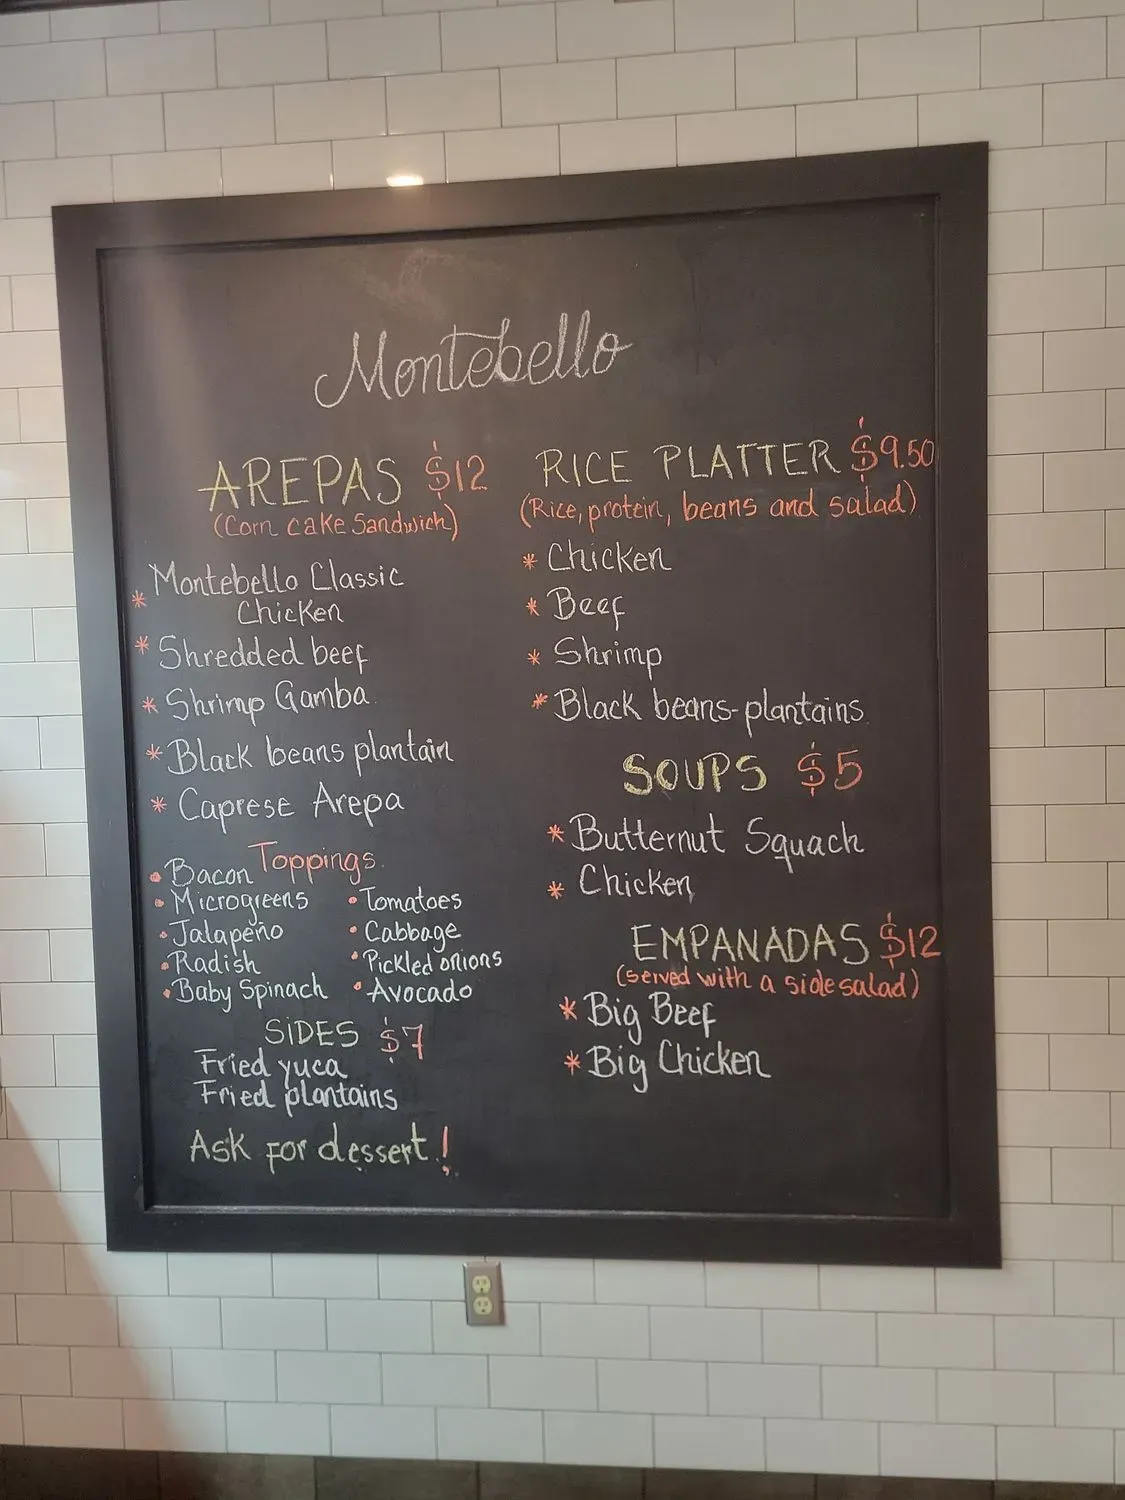 Montebello
AREPAS $12
(Corn cake Sandwich)
* Montebello Classic
Chicken
* Shredded beef
* Shrimp Gamba
* Black beans plantain
* Caprese Arepa
Toppings
• Bacon
• Microgreens
• Jalapeño
• Radish
• Baby Spinach
• Tomatoes
• Cabbage
• Pickled onions
• Avocado
SIDES $7
Fried yuca
Fried plantains
Ask for dessert!
RICE PLATTER $9.50
(Rice, protein, beans and salad)
* Chicken
* Beef
* Shrimp
* Black beans-plantains
SOUPS $5
* Butternut Squach
* Chicken
EMPANADAS $12
(served with a side salad)
* Big Beef
* Big Chicken